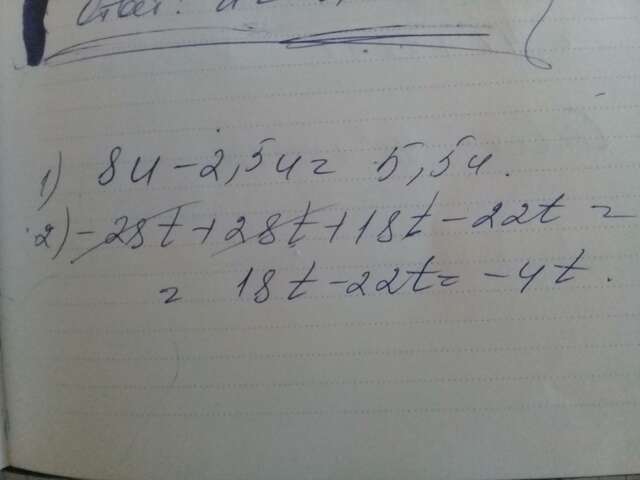 Ответ:
1) 8u - 2,5u = 5,5u.
2) -28t + 28t + 18t - 22t =
= 18t - 22t = -4t.